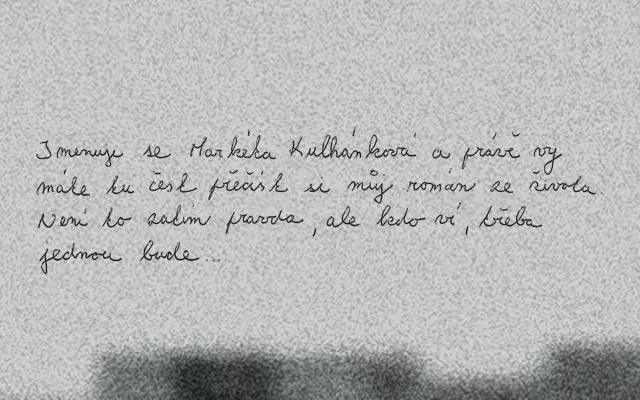 Jmenuje se Markéta Kulhánková a právě vy
máte tu čest přečíst si můj román ze života.
Není to zatím pravda, ale kdo ví, třeba
jednou bude...